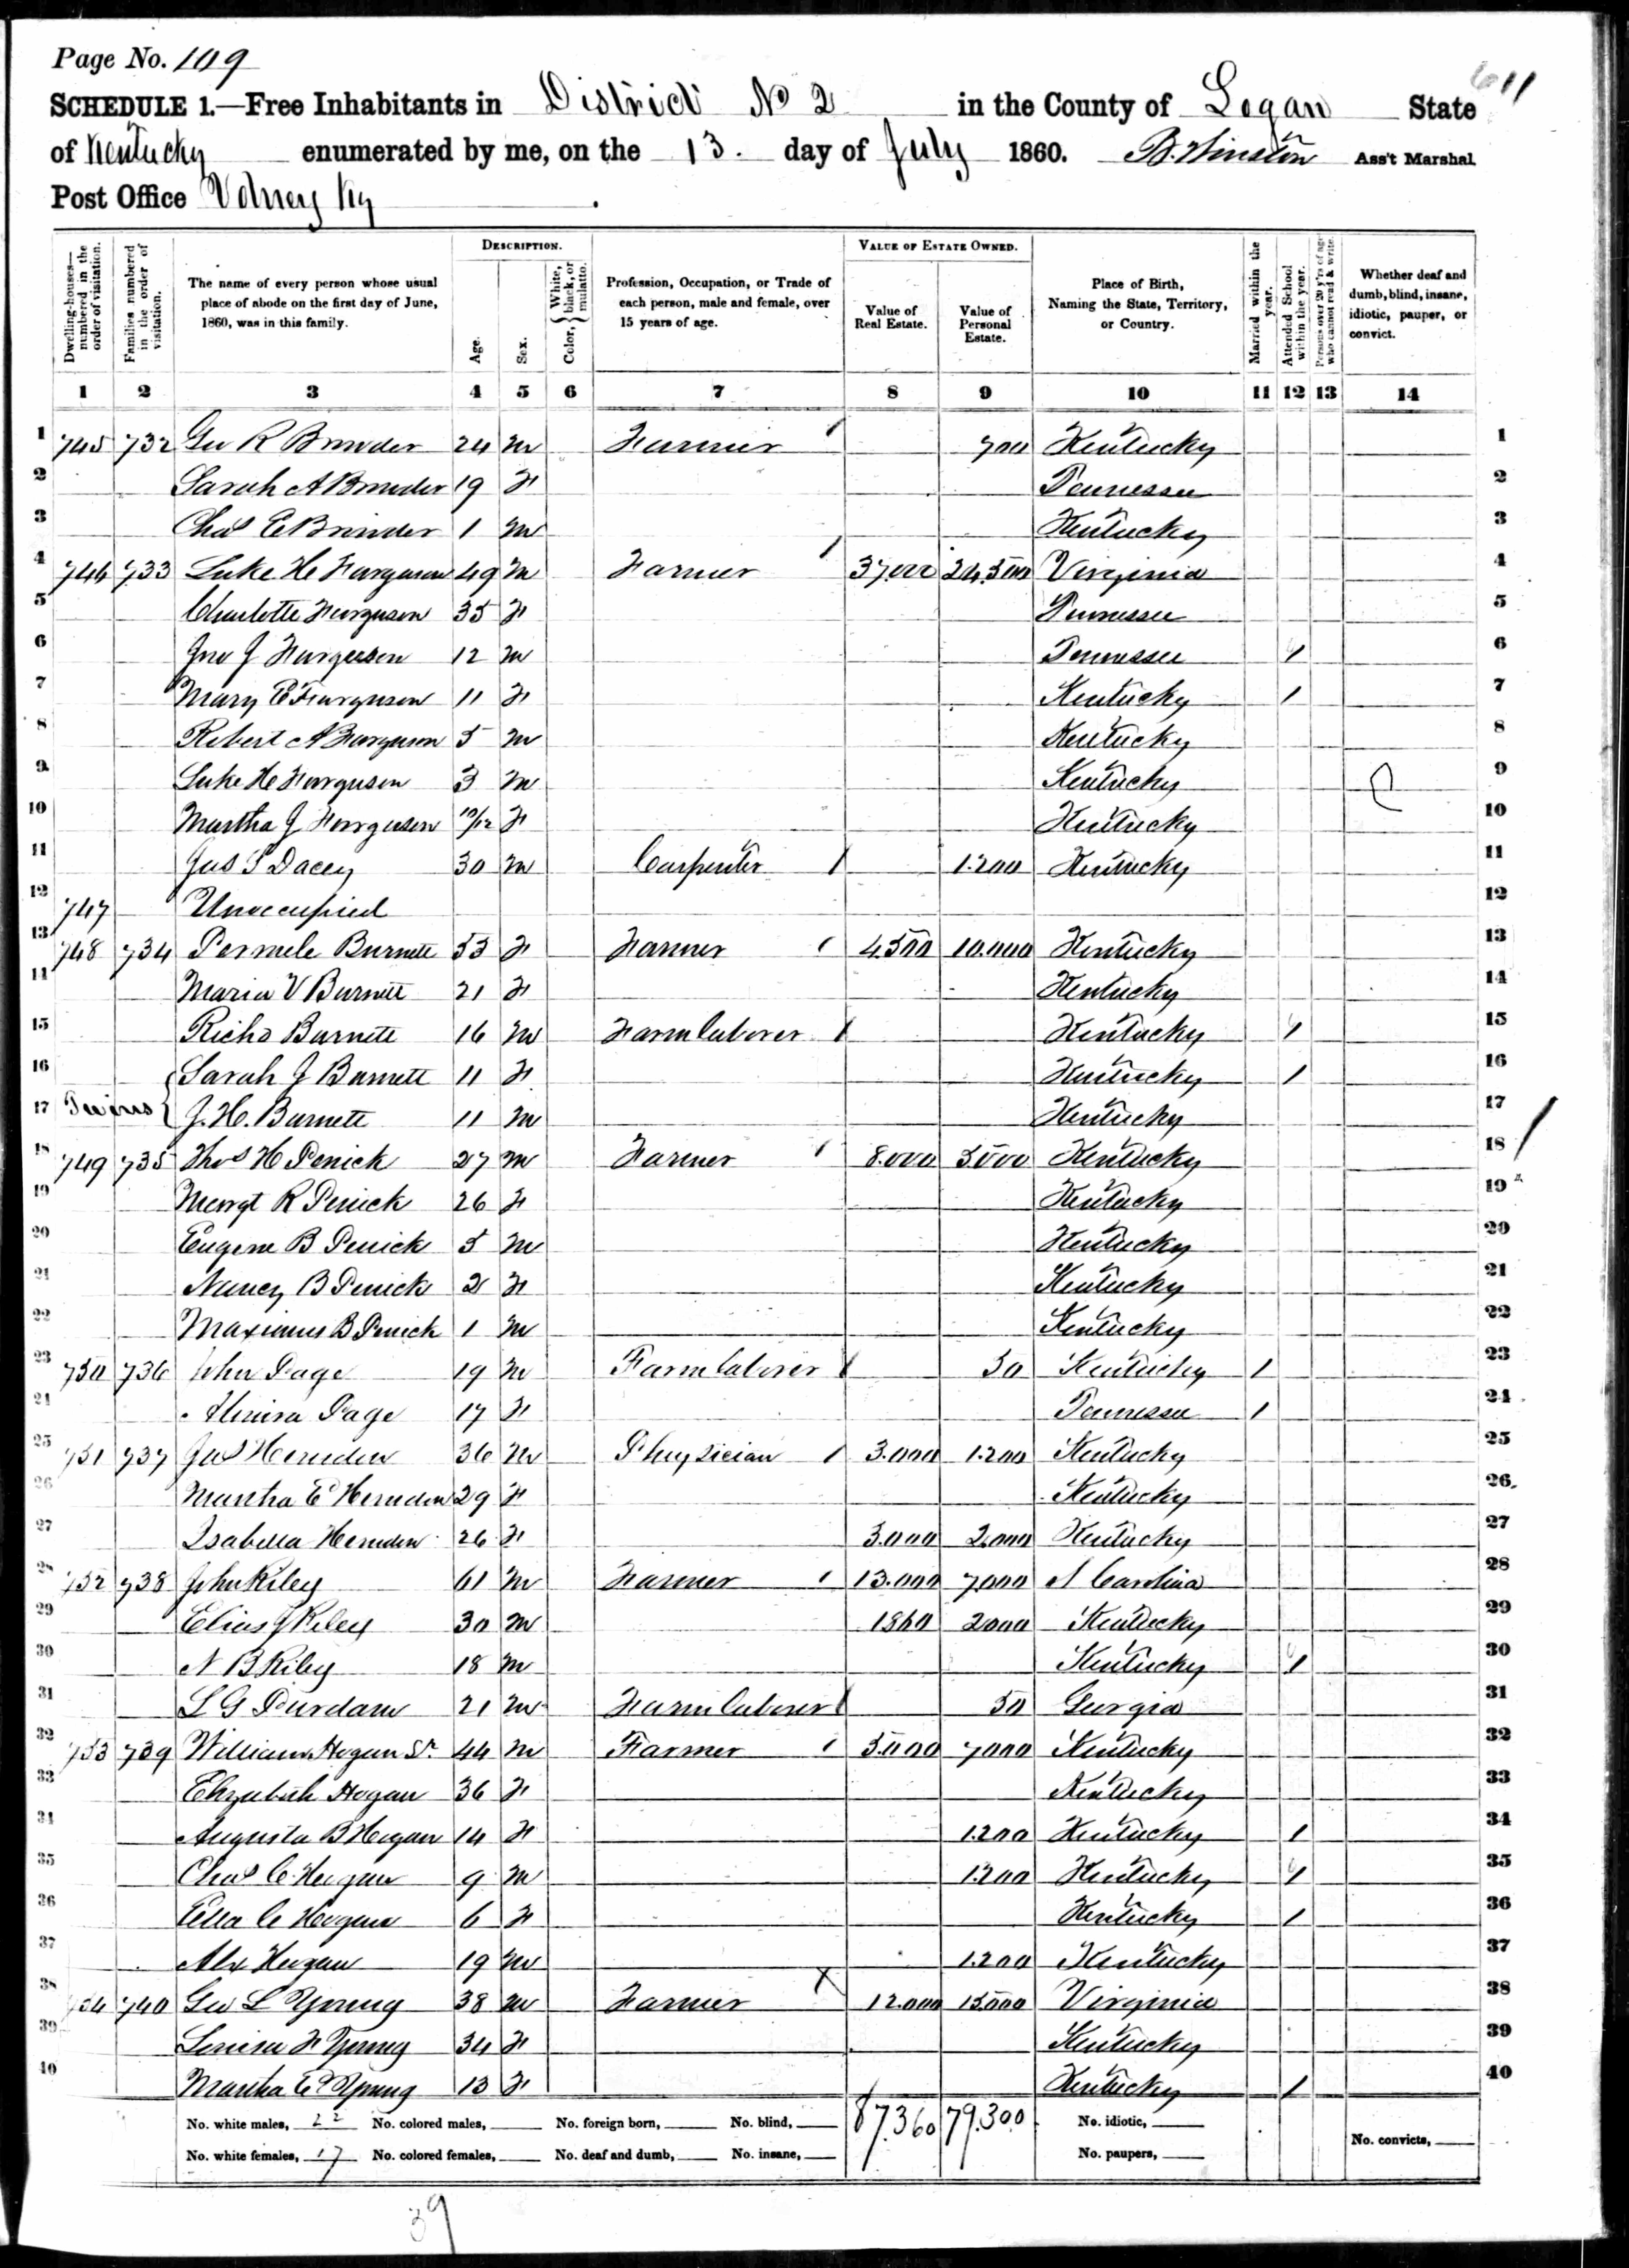 Page No. 109
611
SCHEDULE 1.—Free Inhabitants in District No 2 in the County of Logan State
of Kentucky enumerated by me, on the 13. day of July 1860. B. Winston Ass't Marshal
Post Office Volney Ky
Dwelling-houses—numbered in the order of visitation. Families numbered in the order of visitation. The name of every person whose usual place of abode on the first day of June, 1860, was in this family. DESCRIPTION. Age. Sex. Color, { White, black, or mulatto. Profession, Occupation, or Trade of each person, male and female, over 15 years of age. VALUE OF ESTATE OWNED. Value of Real Estate. Value of Personal Estate. Place of Birth, Naming the State, Territory, or Country. Married within the year. Attended School within the year. Persons over 20 y'rs of age who cannot read & write. Whether deaf and dumb, blind, insane, idiotic, pauper, or convict.
1 2 3 4 5 6 7 8 9 10 11 12 13 14
1 745 732 Geo R Browder 24 M Farmer / 700 Kentucky 1
2 Sarah A Browder 19 F Tennessee 2
3 Chas E Browder 1 M Kentucky 3
4 746 733 Luke H Farguson 49 M Farmer / 37,000 24,500 Virginia 4
5 Charlotte Farguson 35 F Tennessee 5
6 Jno J Farguson 12 M Tennessee 1 6
7 Mary E Farguson 11 F Kentucky 1 7
8 Robert A Farguson 5 M Kentucky 8
9 Luke H Farguson 3 M Kentucky 9
10 Martha J Farguson 10/12 F Kentucky 10
11 Jas S Dacey 30 M Carpenter / 1.200 Kentucky 11
12 747 Unoccupied 12
13 748 734 Permele Burnett 53 F Farmer / 4.500 10.000 Kentucky 13
14 Maria V Burnett 21 F Kentucky 14
15 Richd Burnett 16 M Farm laborer / Kentucky 1 15
16 Sarah J Burnett 11 F Kentucky 1 16
17 Twins } J. H. Burnett 11 M Kentucky 17
18 749 735 Thos H Penick 27 M Farmer / 8.000 5000 Kentucky 18 /
19 Margt R Penick 26 F Kentucky 19
20 Eugene B Penick 5 M Kentucky 20
21 Nancy B Penick 2 F Kentucky 21
22 Maximus B Penick 1 M Kentucky 22
23 750 736 John Page 19 M Farm laborer / 50 Kentucky 1 23
24 Almira Page 17 F Tennessee 1 24
25 751 737 Jas Herndon 36 M Physician / 3.000 1.200 Kentucky 25
26 Martha E Herndon 29 F Kentucky 26
27 Isabella Herndon 26 F 3.000 2.000 Kentucky 27
28 752 738 John Riley 61 M Farmer / 13.000 7000 N Carolina 28
29 Elias J Riley 30 M 1860 2000 Kentucky 29
30 N B Riley 18 M Kentucky 1 30
31 L G Durdam 21 M Farm laborer / 50 Georgia 31
32 753 739 William Hogan Sr. 44 M Farmer / 5.000 7000 Kentucky 32
33 Elizabeth Hogan 36 F Kentucky 33
34 Augusta B Hogan 14 F 1.200 Kentucky 1 34
35 Chas C Hogan 9 M 1.200 Kentucky 1 35
36 Ella C Hogan 6 F Kentucky 1 36
37 Alex Hogan 19 M 1.200 Kentucky 37
38 754 740 Geo L Young 38 M Farmer X 12.000 15.000 Virginia 38
39 Louisa F Young 34 F Kentucky 39
40 Martha E Young 13 F Kentucky 1 40
No. white males, 22 No. colored males, No. foreign born, No. blind, 87.360 79.300 No. idiotic,
No. white females, 17 No. colored females, No. deaf and dumb, No. insane, No. paupers, No. convicts,
39